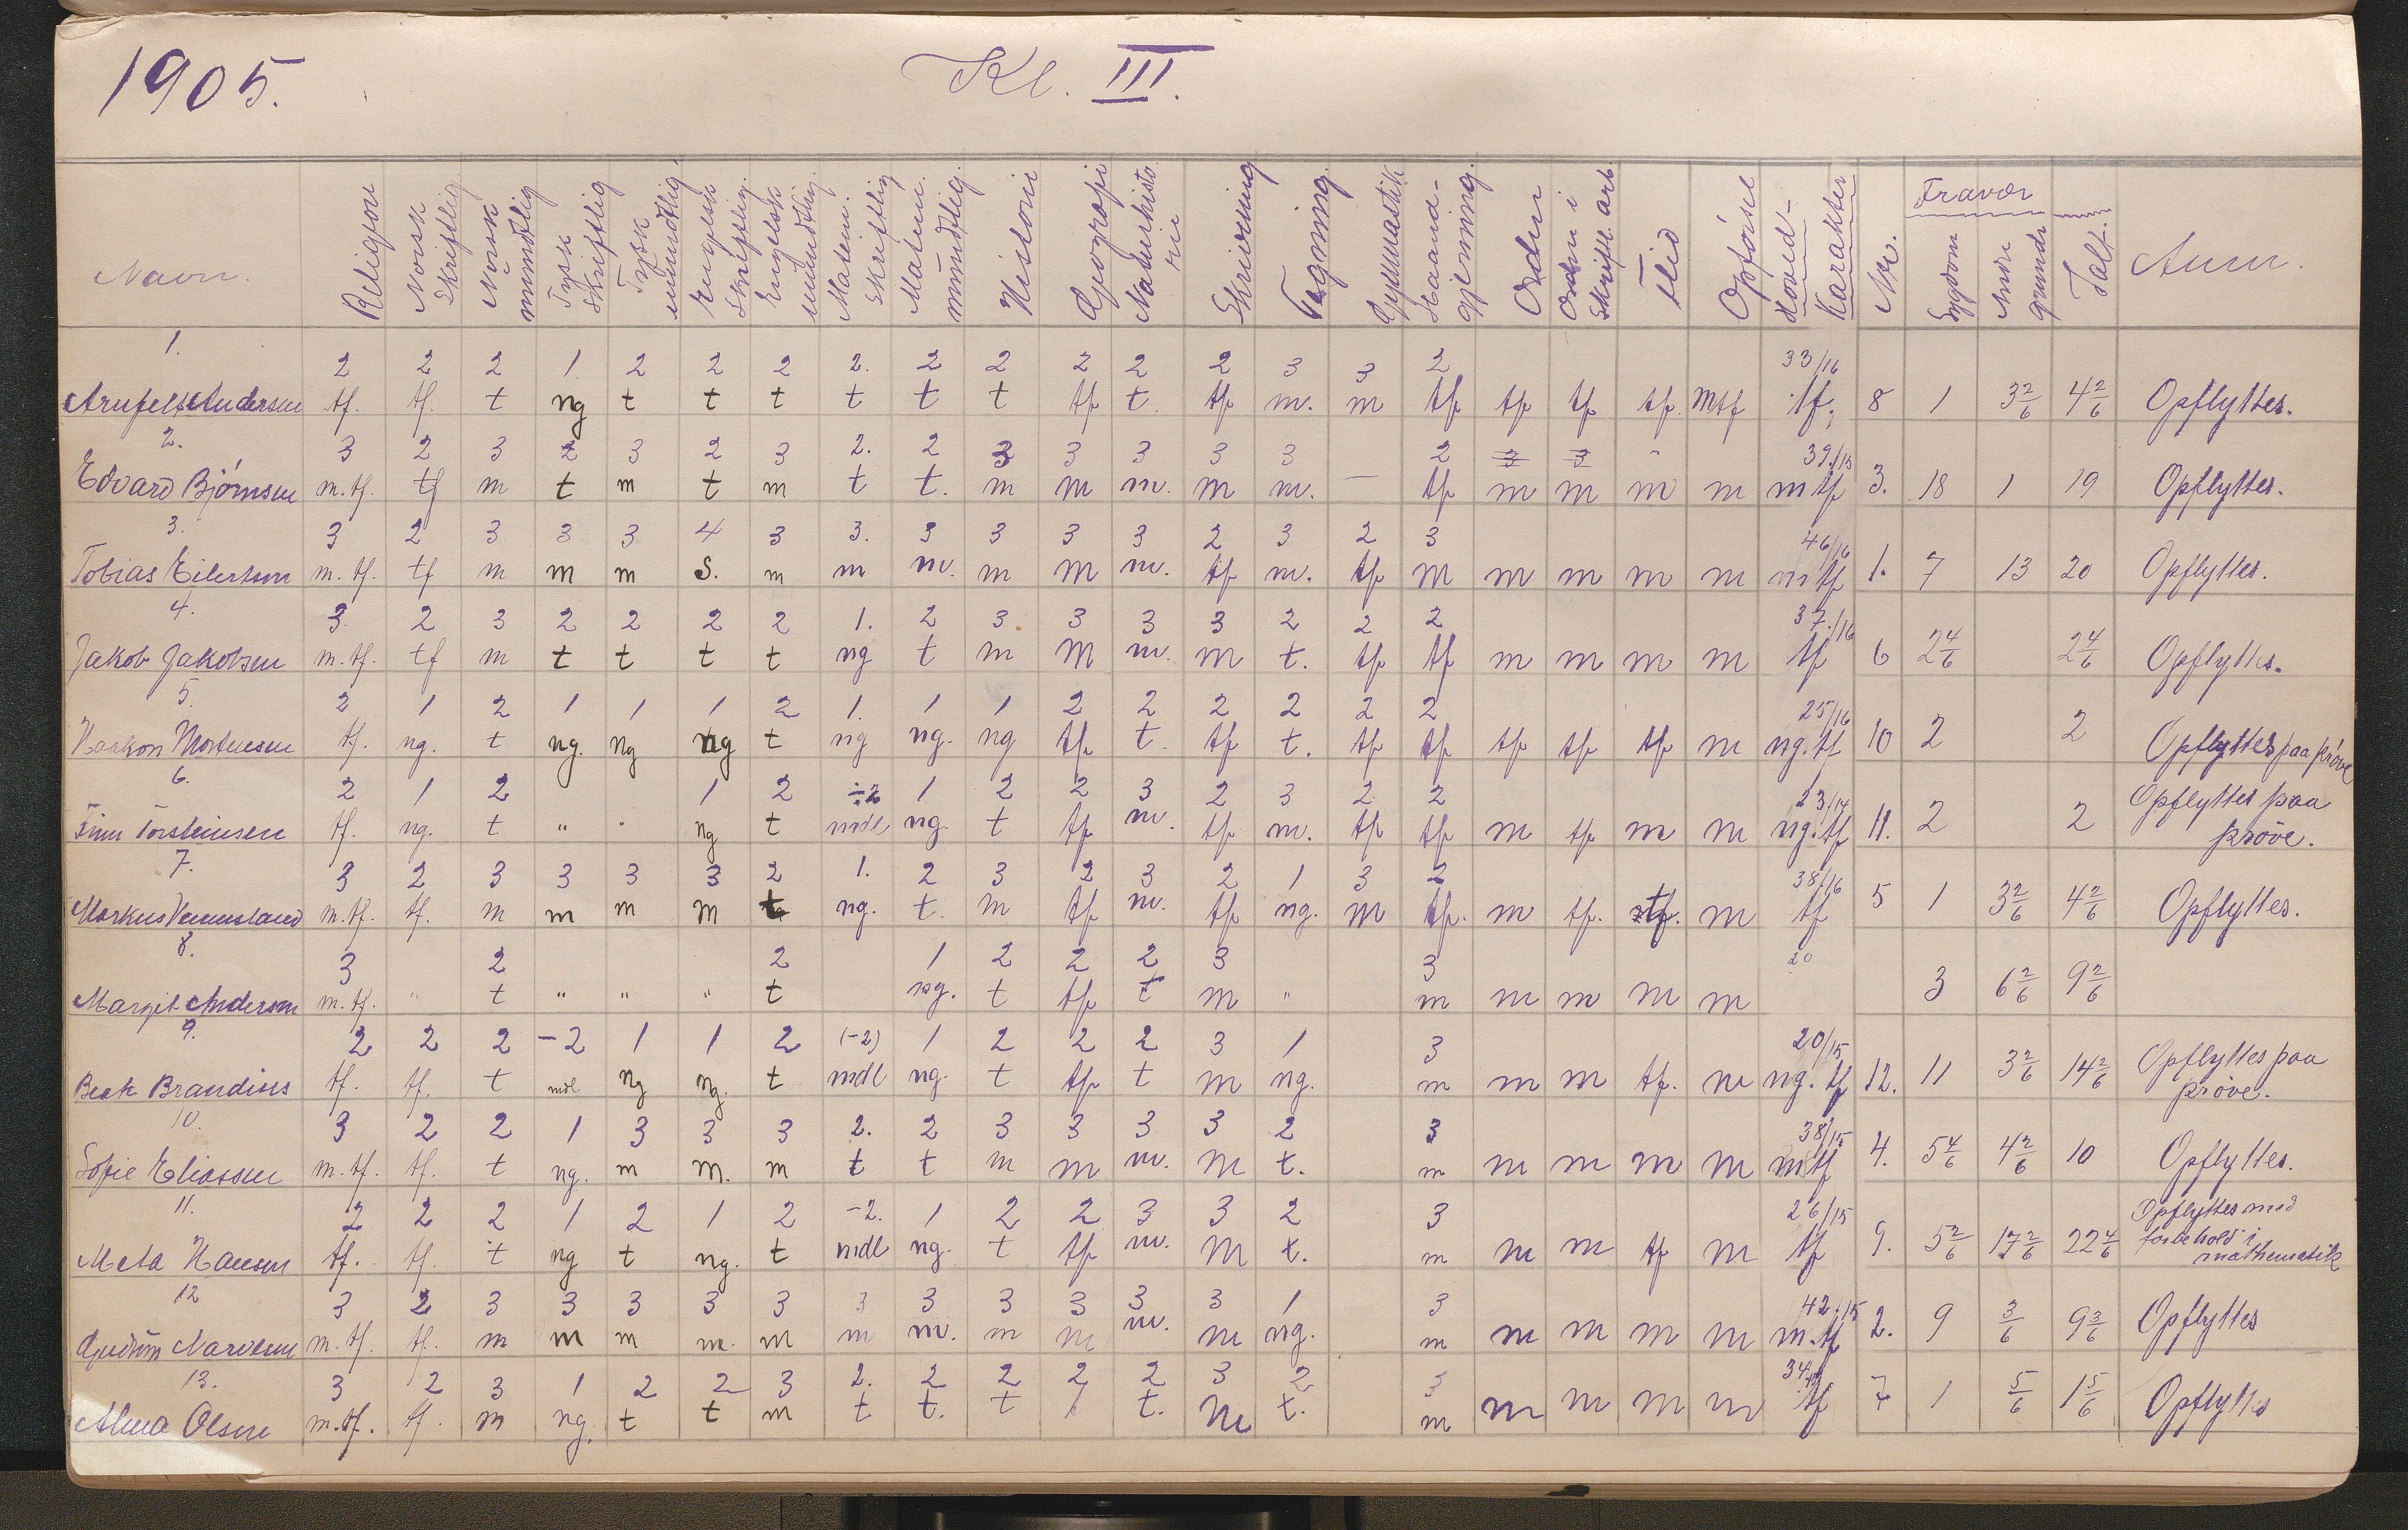 1905.
Kl. III.
Navn. Religion Norsk Skriftlig Norsk mundtlig Tysk Skriftlig Tysk mundtlig Engelsk Skriftlig Engelsk mundtlig Matem. Skriftlig Matem. mundtlig Historie Geografi Naturhistorie Skrivning Tegning Gymnastik Haandgjerning Orden Orden i Skriftl. arb. Flid Opførsel Hoved-Karakter Nr. Fravær Sygdom Andre grunde Ialt. Anm.
1. 2 2 2 1 2 2 2 2. 2 2 2 2 2 3 3 2 33/16
Andersen tf. tf. t ng t t t t t t tf t. tf m. m tf tf tf tf. mtf tf. 8 1 3 2/6 4 2/6 Opflyttes.
2. 3 2 3 2 3 2 3 2. 2 3 3 3 3 3 2 3 3 39/15
Edvard Bjørnsen m.tf. tf m t m t m t t. m m m. m m. — tf m m m m m tf 3. 18 1 19 Opflyttes.
3. 3 2 3 3 3 4 3 3. 3 3 3 3 2 3 2 3 46/16
Tobias Eilertsen m.tf. tf m m m s. m m m. m m m. tf m. tf m m m m m m tf 1. 7 13 20 Opflyttes.
4. 3. 2 3 2 2 2 2 1. 2 3 3 3 3 2 2 2 37/16
Jakob Jakobsen m.tf. tf m t t t t ng t m m m. m t. tf tf m m m m tf 6 2 4/6 2 4/6 Opflyttes.
5. 2 1 2 1 1 1 2 1. 1 1 2 2 2 2 2 2 25/16
Haakon Mortensen tf. ng. t ng. ng ng t ng ng. ng tf t. tf t. tf tf tf tf tf m ng.tf 10 2 2 Opflyttes paa prøve
6. 2 1 2 1 2 ÷2 1 2 2 3 2 3 2 2 23/14
Finn Torsteinsen tf. ng. t " " ng t mdl ng. t tf m. tf m. tf tf m tf m m ng.tf 11. 2 2 Opflyttes paa prøve.
7. 3 2 3 3 3 3 2 1. 2 3 2 3 2 1 3 2 38/16
Markus Vennesland m.tf. tf. m m m m t ng. t. m tf m. tf ng. m tf. m tf. tf. m tf 5 1 3 2/6 4 2/6 Opflyttes.
8. 3 2 2 1 2 2 2 3 3 20
Margit Andersen m.tf. " t " " " t ng. t tf t m " m m m m m 3 6 2/6 9 2/6
9. 2 2 2 -2 1 1 2 (-2) 1 2 2 2 3 1 3 20/15
Brandsis tf. tf. t mdl. ng ng. t mdl ng. t tf t m ng. m m m tf. m ng.tf 12. 11 3 2/6 14 2/6 Opflyttes paa prøve.
10. 3 2 2 1 3 3 3 2. 2 3 3 3 3 2 3 38/15
Sofie Eliassen m.tf. tf. t ng. m m. m t t m m m. m t. m m m m m mtf 4. 5 4/6 4 2/6 10 Opflyttes.
11. 2 2 2 1 2 1 2 -2. 1 2 2 3 3 2 3 26/15
Meta Hansen tf. tf. t ng t ng. t mdl ng. t tf m. m t. m m m tf m tf 9. 5 2/6 17 2/6 22 4/6 Opflyttes med forbehold i mathematik
12 3 2 3 3 3 3 3 3 3 3 3 3 3 1 3 42/15
Gudrun m.tf. tf. m m m m. m m m. m m m. m ng. m m m m m m.tf 2. 9 3/6 9 3/6 Opflyttes
13. 3 2 3 1 2 2 3 2. 2 2 2 2 3 2 3 34
Alma Olsen m.tf. tf. m ng. t t m t t. t t. m t. m m m m m tf 7 1 5/6 1 5/6 Opflyttes